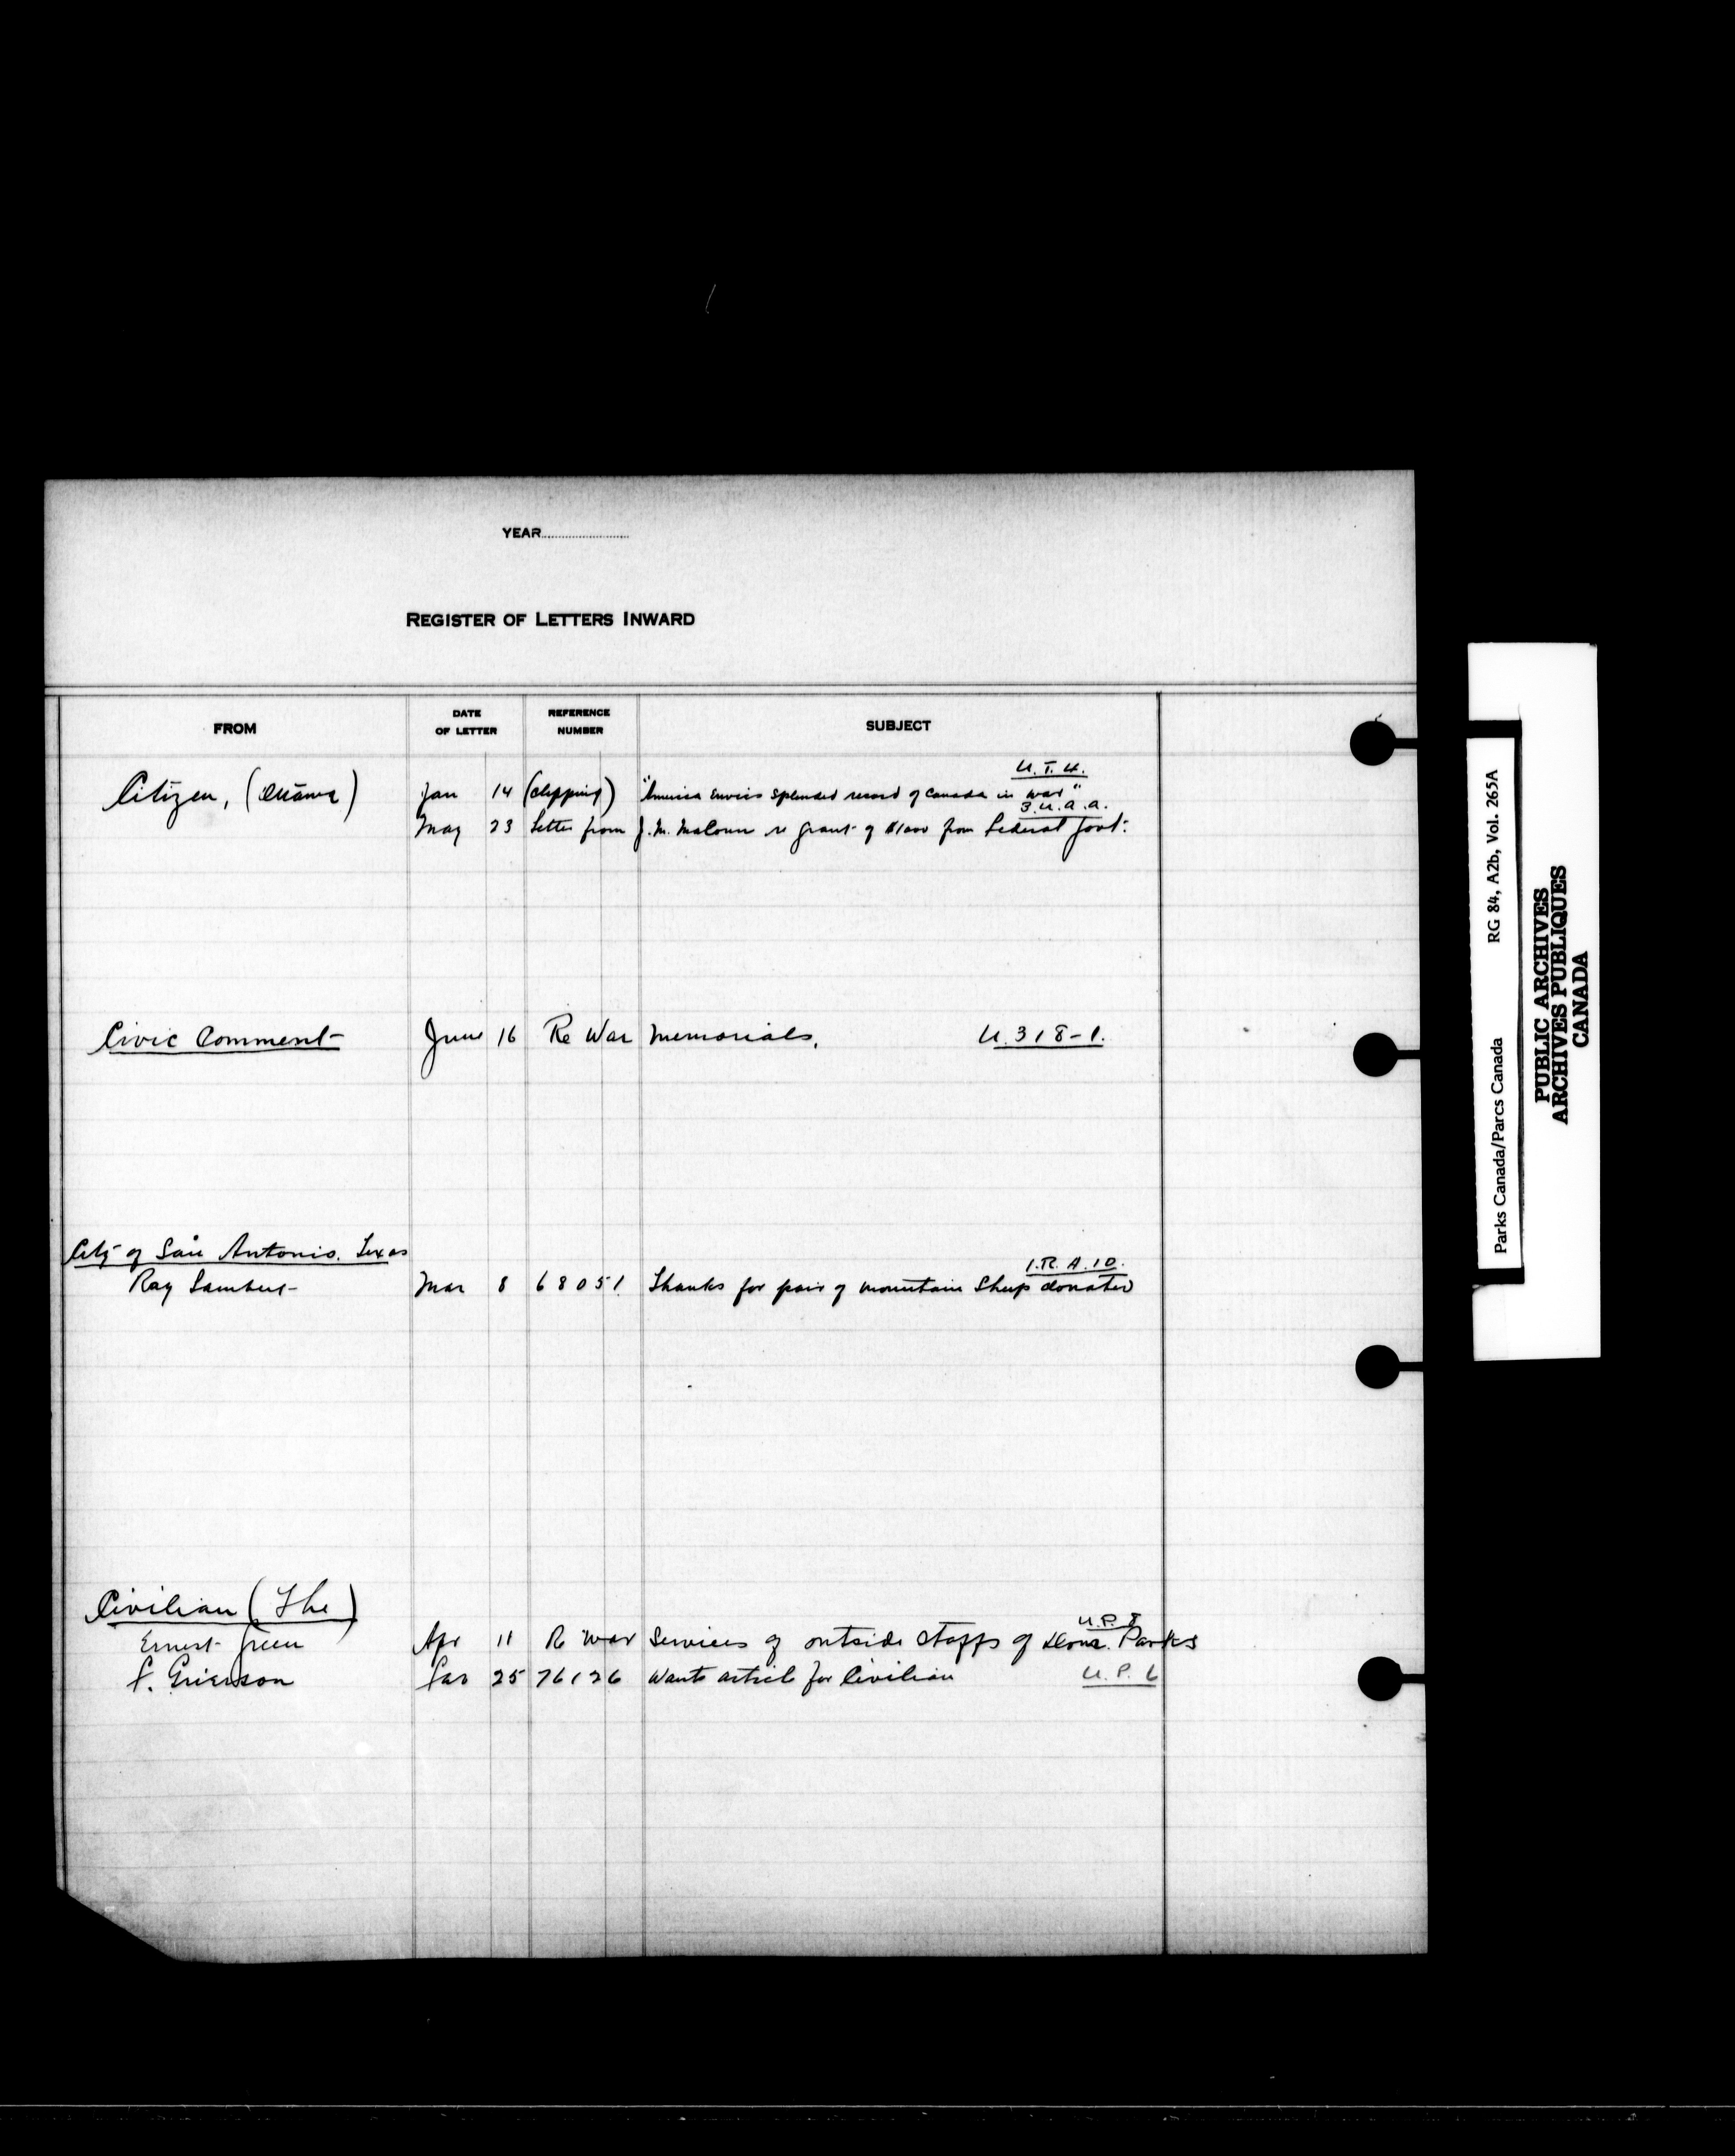 YEAR
REGISTER OF LETTERS INWARD
FROM DATE OF LETTER REFERENCE NUMBER SUBJECT
U.T.4.
Citizen, (Ottawa) Jan 14 (clipping) "America envies splendid record of Canada in war"
3.U.a.a.
May 23 Letter from J.M. re grant of $1000 from Federal Govt.
Civic Comment June 16 Re War Memorials, U.318-1.
City of San Antonio. Texas
1.R.A.10.
Ray Lambert Mar 8 68051 Thanks for pair of mountain Sheep donated
Civilian (The)
U.P.8
Ernest Green Apr 11 Re War Services of outside staffs of Parks
F. Grierson 25 76126 Wants article for Civilian U.P.6
Parks Canada/Parcs Canada RG 84, A2b, Vol. 265A
PUBLIC ARCHIVES
ARCHIVES PUBLIQUES
CANADA